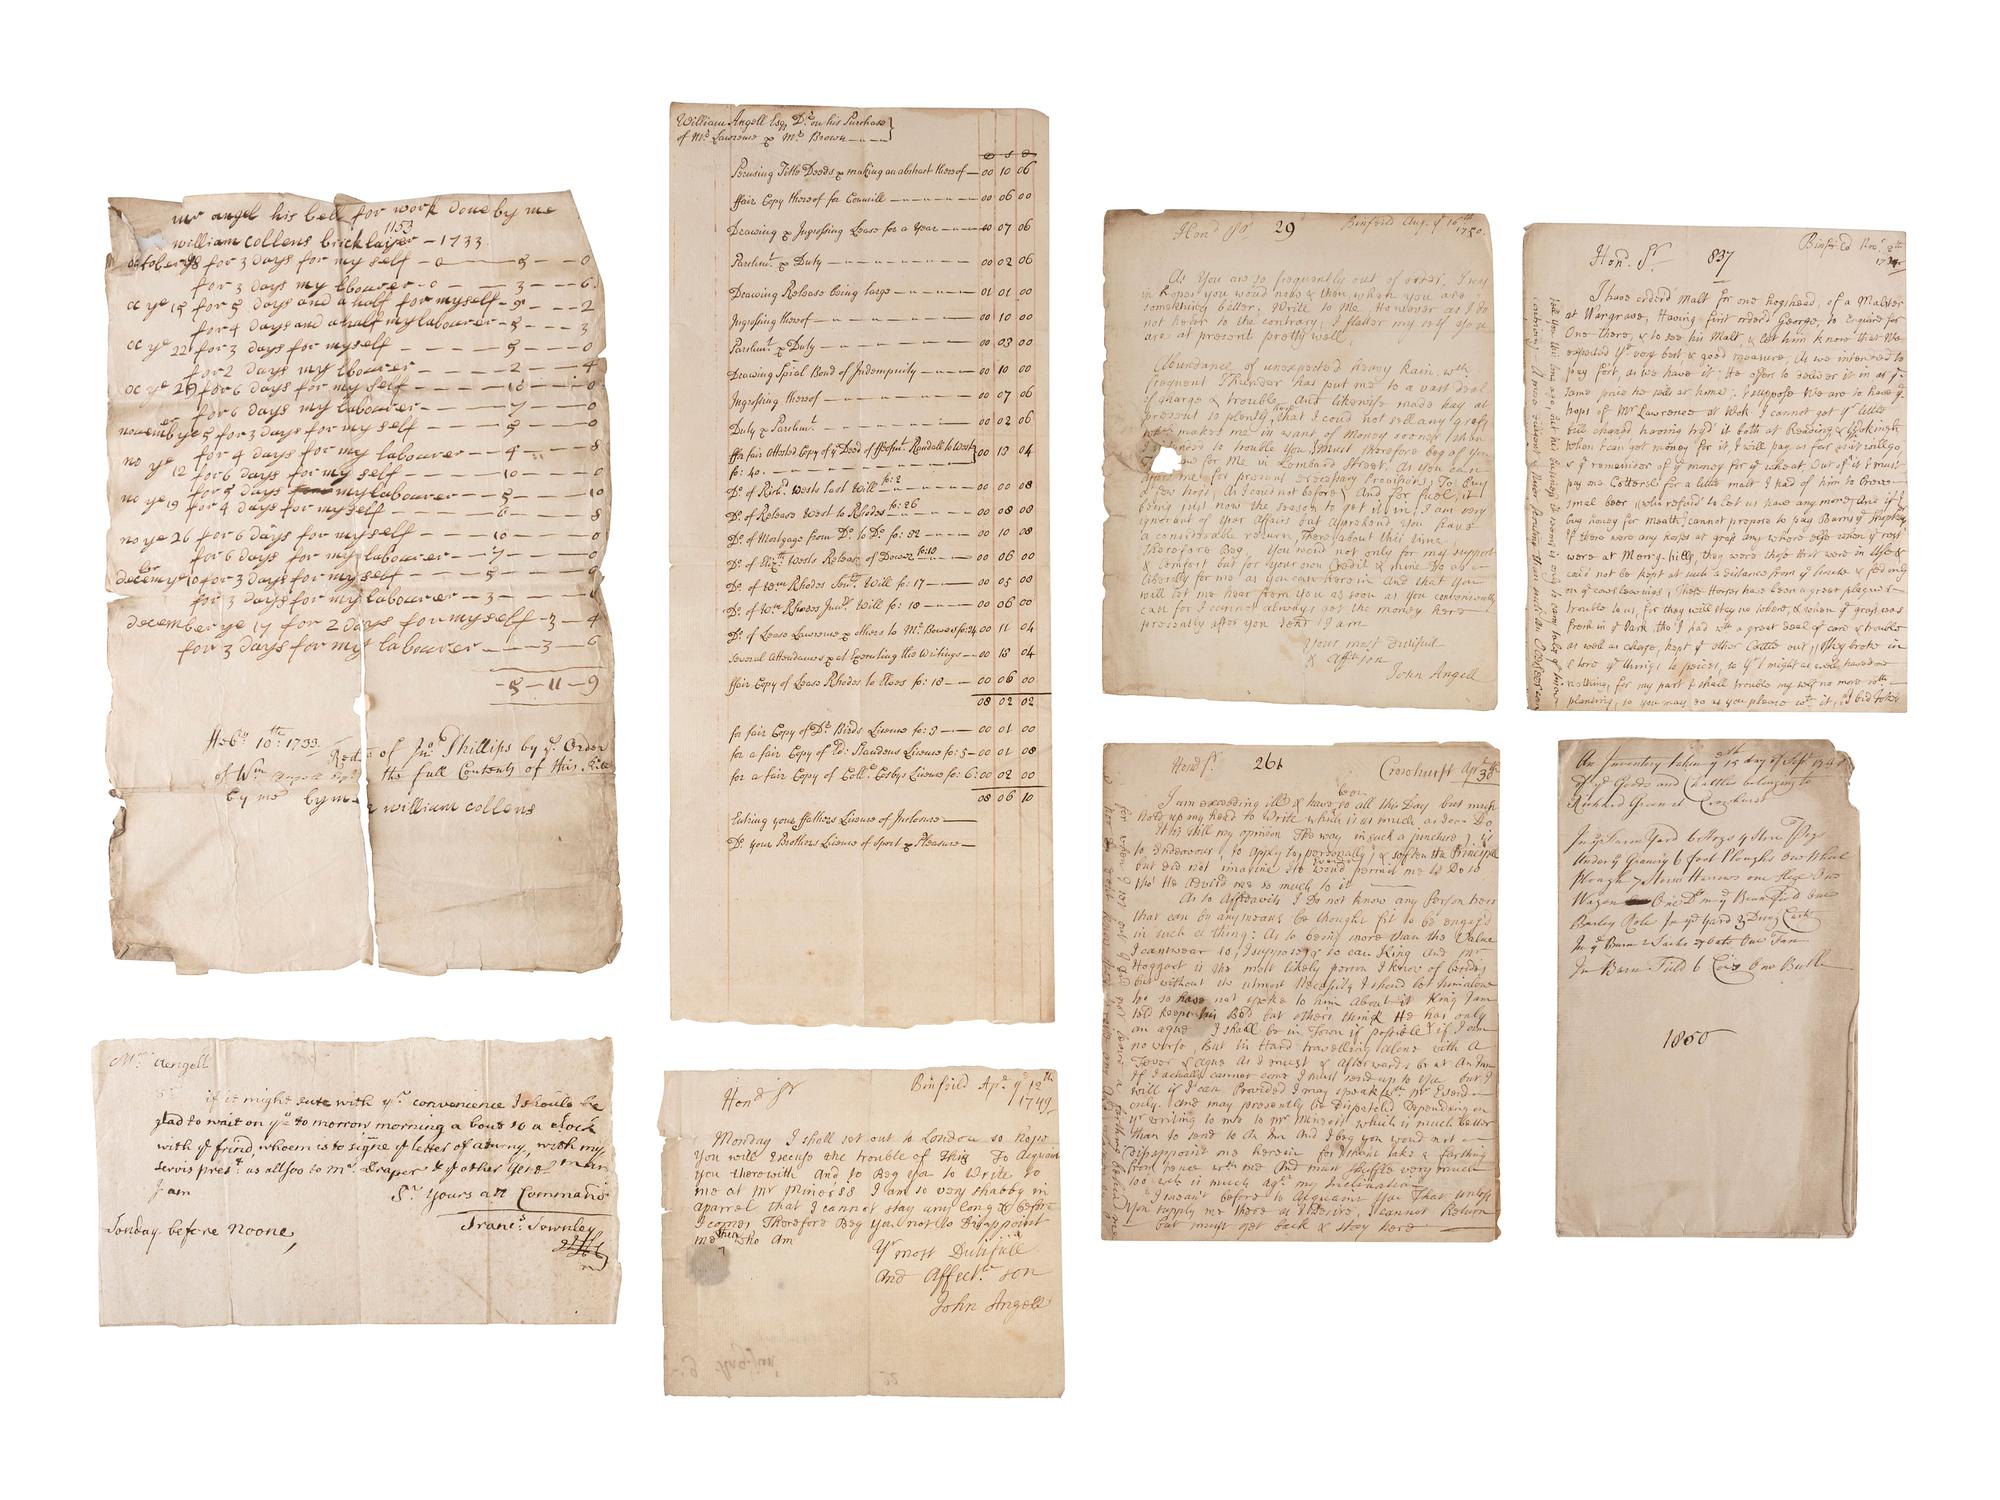 mr angel his bell for work done by me
1153
william collens bricklayer - 1733
october for 3 days for my self - 0 - 5 - 0
for 3 days my labourer - 0 - 3 - 6
oc ye 15 for 5 days and a half for myself - 9 - 2
for 4 days and a half my labourer - 5 - 3
oc ye 22 for 3 days for myself - 5 - 0
for 2 days my lbourer - 2 - 4
oc ye 29 for 6 days for my self - 10 - 0
for 6 days my labourer - 7 - 0
november ye 5 for 3 days for my self - 5 - 0
for 4 days for my labourer - 4 - 8
no ye 12 for 6 days for my self - 10 - 0
for 5 days my labourer - 5 - 10
no ye 19 for 4 days for myself - 6 - 8
no ye 26 for 6 days for myself - 10 - 0
for 6 days for my labourer - 7 - 0
decem ye 10 for 3 days for myself - 5 - 0
for 3 days for my labourer - 3 - 6
december ye 17 for 2 days for myself - 3 - 4
for 3 days for my labourer - 3 - 6
- 5 - 11 - 9
Feby 10th: 1733. Recd of Jno Phillips by ye Order
of Wm Angell Esqr the full Contents of this Bill
by me by me william collens
Mr Aengell
Sr if it might sute with yr convenience I should be
glad to wait on you to morrow morning a bout 10 a clock
with ye frind, whom is to signe ye letter of aturny, with my
servis prest as allsoo to mr. Draper & ye other Gentlman
I am Sr Yours att Command
Sonday before noone, Francs Townley
William Angell Esq Dr on his Purchase
of Mrs Lawrence & Mrs Brown
Perusing Title Deeds & making an abstract thereof - 00 10 06
ffair Copy thereof for Councill - 00 06 00
Drawing & Ingrossing Lease for a Year - 00 07 06
Parchmt & Duty - 00 02 06
Drawing Release being large - 01 01 00
Ingrossing thereof - 00 10 00
Parchmt & Duty - 00 03 00
Drawing Spial Bond of Indempnity - 00 10 00
Ingrossing thereof - 00 07 06
Duty & Parchmt - 00 02 06
ffor fair Attested Copy of ye Deed of ffeofmt Randall to West fo: 40 - 00 13 04
Do of Richd Wests last Will fo: 2 - 00 00 08
Do of Release West to Rhodes fo: 26 - 00 08 08
Do of Mortgage from Do to Do fo: 32 - 00 10 08
Do of Eliz:th Wests Release of Dower fo: 18 - 00 06 00
Do of Wm Rhodes Senrs Will fo: 17 - 00 05 08
Do of Wm Rhodes Junrs Will fo: 18 - 00 06 00
Do of Lease Lawrence & others to Mr Bowers fo: 34 - 00 11 04
Several Attendances & at Executing the Writings - 00 13 04
ffair Copy of Lease Rhodes to Ives fo: 18 - 00 06 00
08 02 02
for fair Copy of Dr Birds Lisence fo: 3 - 00 01 00
for a fair Copy of Ed: Standens Lisence fo: 5 - 00 01 08
for a fair Copy of Coll:o Cosbys Lisence fo: 6: 00 02 00
08 06 10
Entring your ffathers Lisence of Inclosure
Do your Brothers Lisence of Sport & Pleasure
Hond Sr Binfeild Apr. ye 12th
1749.
Monday I shall set out to London so hope
You will Excuse the trouble of This To Acquaint
you therewith And to Beg You to Write to
me at Mr Minors's I am so very shabby in
aparrel that I cannot stay any long & before
I come, Therefore Beg You not to Disappoint
me then who Am
Yr most Dutifull
And Affectte son
John Angell
Hond Sr 29 Binfeild Aug. ye 16th
1750.
As You are so frequently out of order, I was
in hopes you woud now & then, when you are
something better, Write to Me, However as I do
not hear to the contrary, I flatter my self you
are at present pretty well,
Abundance of unexpected heavy Rain, with
frequent Thunder has put me to a vast deal
of charge & trouble, And likewise made hay at
present so plenty here, that I could not sell any grass
which makes me in want of Money sooner than
to trouble you, I must therefore beg of You
for Me in Lombard Street, As you can
me, for present necessary Provisions, To buy
a few hops, As I coud not before & And for fuel, it
being just now the season to get it in, I am very
ignorant of your Affairs but Aprehend, You have
a considerable return, There about this time.
Therefore Beg, You woud not only for my support
& Comfort but for your own Credit & mine Do as
liberally for me as you can herein And that You
will let me hear from You as soon as You conveniently
can for I cannot always get the money here
presently after you send I am
Your most Dutifull
& Affte son
John Angell
Hond Sr. 261 Crowhurst Apr. 30th
I am exceeding ill & have been so all this Day but much
hold up my head to Write which is as much as I can Do
It is still my opinion The way in such a juncture, is
to Endeavour, to Apply to, personally, & soften the Principle
but did not imagine He woud permit me to Do so
tho' He Advisd me so much to it
As to Affidavits I do not know any Person here
that can by any means be thought fit to be engag'd
in such a thing: As to being more than the Value
I can swear to, I suppose & so can King And Mr
Hoggart is the most likely person I know of besides
but without the utmost Necessity I shoud let him alone
so have not spoke to him About it King I am
told keeps his Bed but others think He has only
an ague I shall be in Town if possible & if I am
no worse But in Hard travelling alone with A
Fever & Ague As I must & afterwards be at An Inn
If I actually cannot come I must send up to You but I
will if I can Provided I may speak with mr Eserd
only. And may presently be Dispatchd Depending on
yr writing to me to mr Minors's which is much better
than to send to An Inn And I beg you woud not
Disappoint me herein for I shant take a farthing
from hence with me And must shuffle very much
too which is much agst my Inclination
I meant before to Acquaint You That unless
You supply me there as I desire, I cannot Return
but must get back & stay here
Hond. Sr 837 Binfeild Novr 8th
I have orderd Malt for one hogshead, of a Malster
at Wargrave, Having first orderd George, to Enquire for
One there, & to see his Malt, & let him know that We
expected ye very best & good measure, As we intended to
pay for it, as we have it; He offers to deliver it in at ye
same price he sells at home; I suppose We are to have ye
hops of Mr Lawrence at Wok. I cannot get ye little
bill cheard having try'd it both at Reading & Wokingh
When I can get money for it, I will pay as far as it will go,
& ye remainder of ye money for ye wheat, Out of it I must
pay me Cotterel for a little malt I had of him to brew
smal beer, who refus'd to let us have any more, And if I
buy honey for Meath, cannot propose to pay Barns ye
If there were any horses at grass any where else when ye rest
were at Merry-hills, they were those that were in Use &
could not be kept at such a distance from ye house & feeding
on ye coarse leavings; These Horses have been a great plague &
trouble to us, for they will stay no where, & when ye grass was
fresh in ye Park, tho' I had with a great deal of care & trouble
as well as charge, kept ye other Cattle out, They broke in
& tore ye things to peices, so yt I might as well have done
nothing, for my part I shall trouble my self no more with
planting, so you may do as you please with it, I bid John
An Inventory taken ye 15 day of Sept 174
of ye Goods and Chattle belonging to
Richard Green at Crowhurst
In ye Farm Yard 6 Hogs 4 Store Piggs
Under ye Granery 6 foot Ploughs One Wheel
Plough 7 Harrows one
Wagon One Do in ye Bean Field One
Barley Role In ye Yard 3 Dung Cart
In ye Barn 2 Sacks One Fan
In Barn Field 6 Cows One Bull
1850